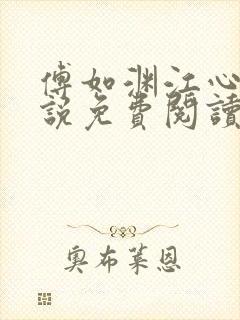 傅如渊江心
說免費閱讀
奧布萊恩